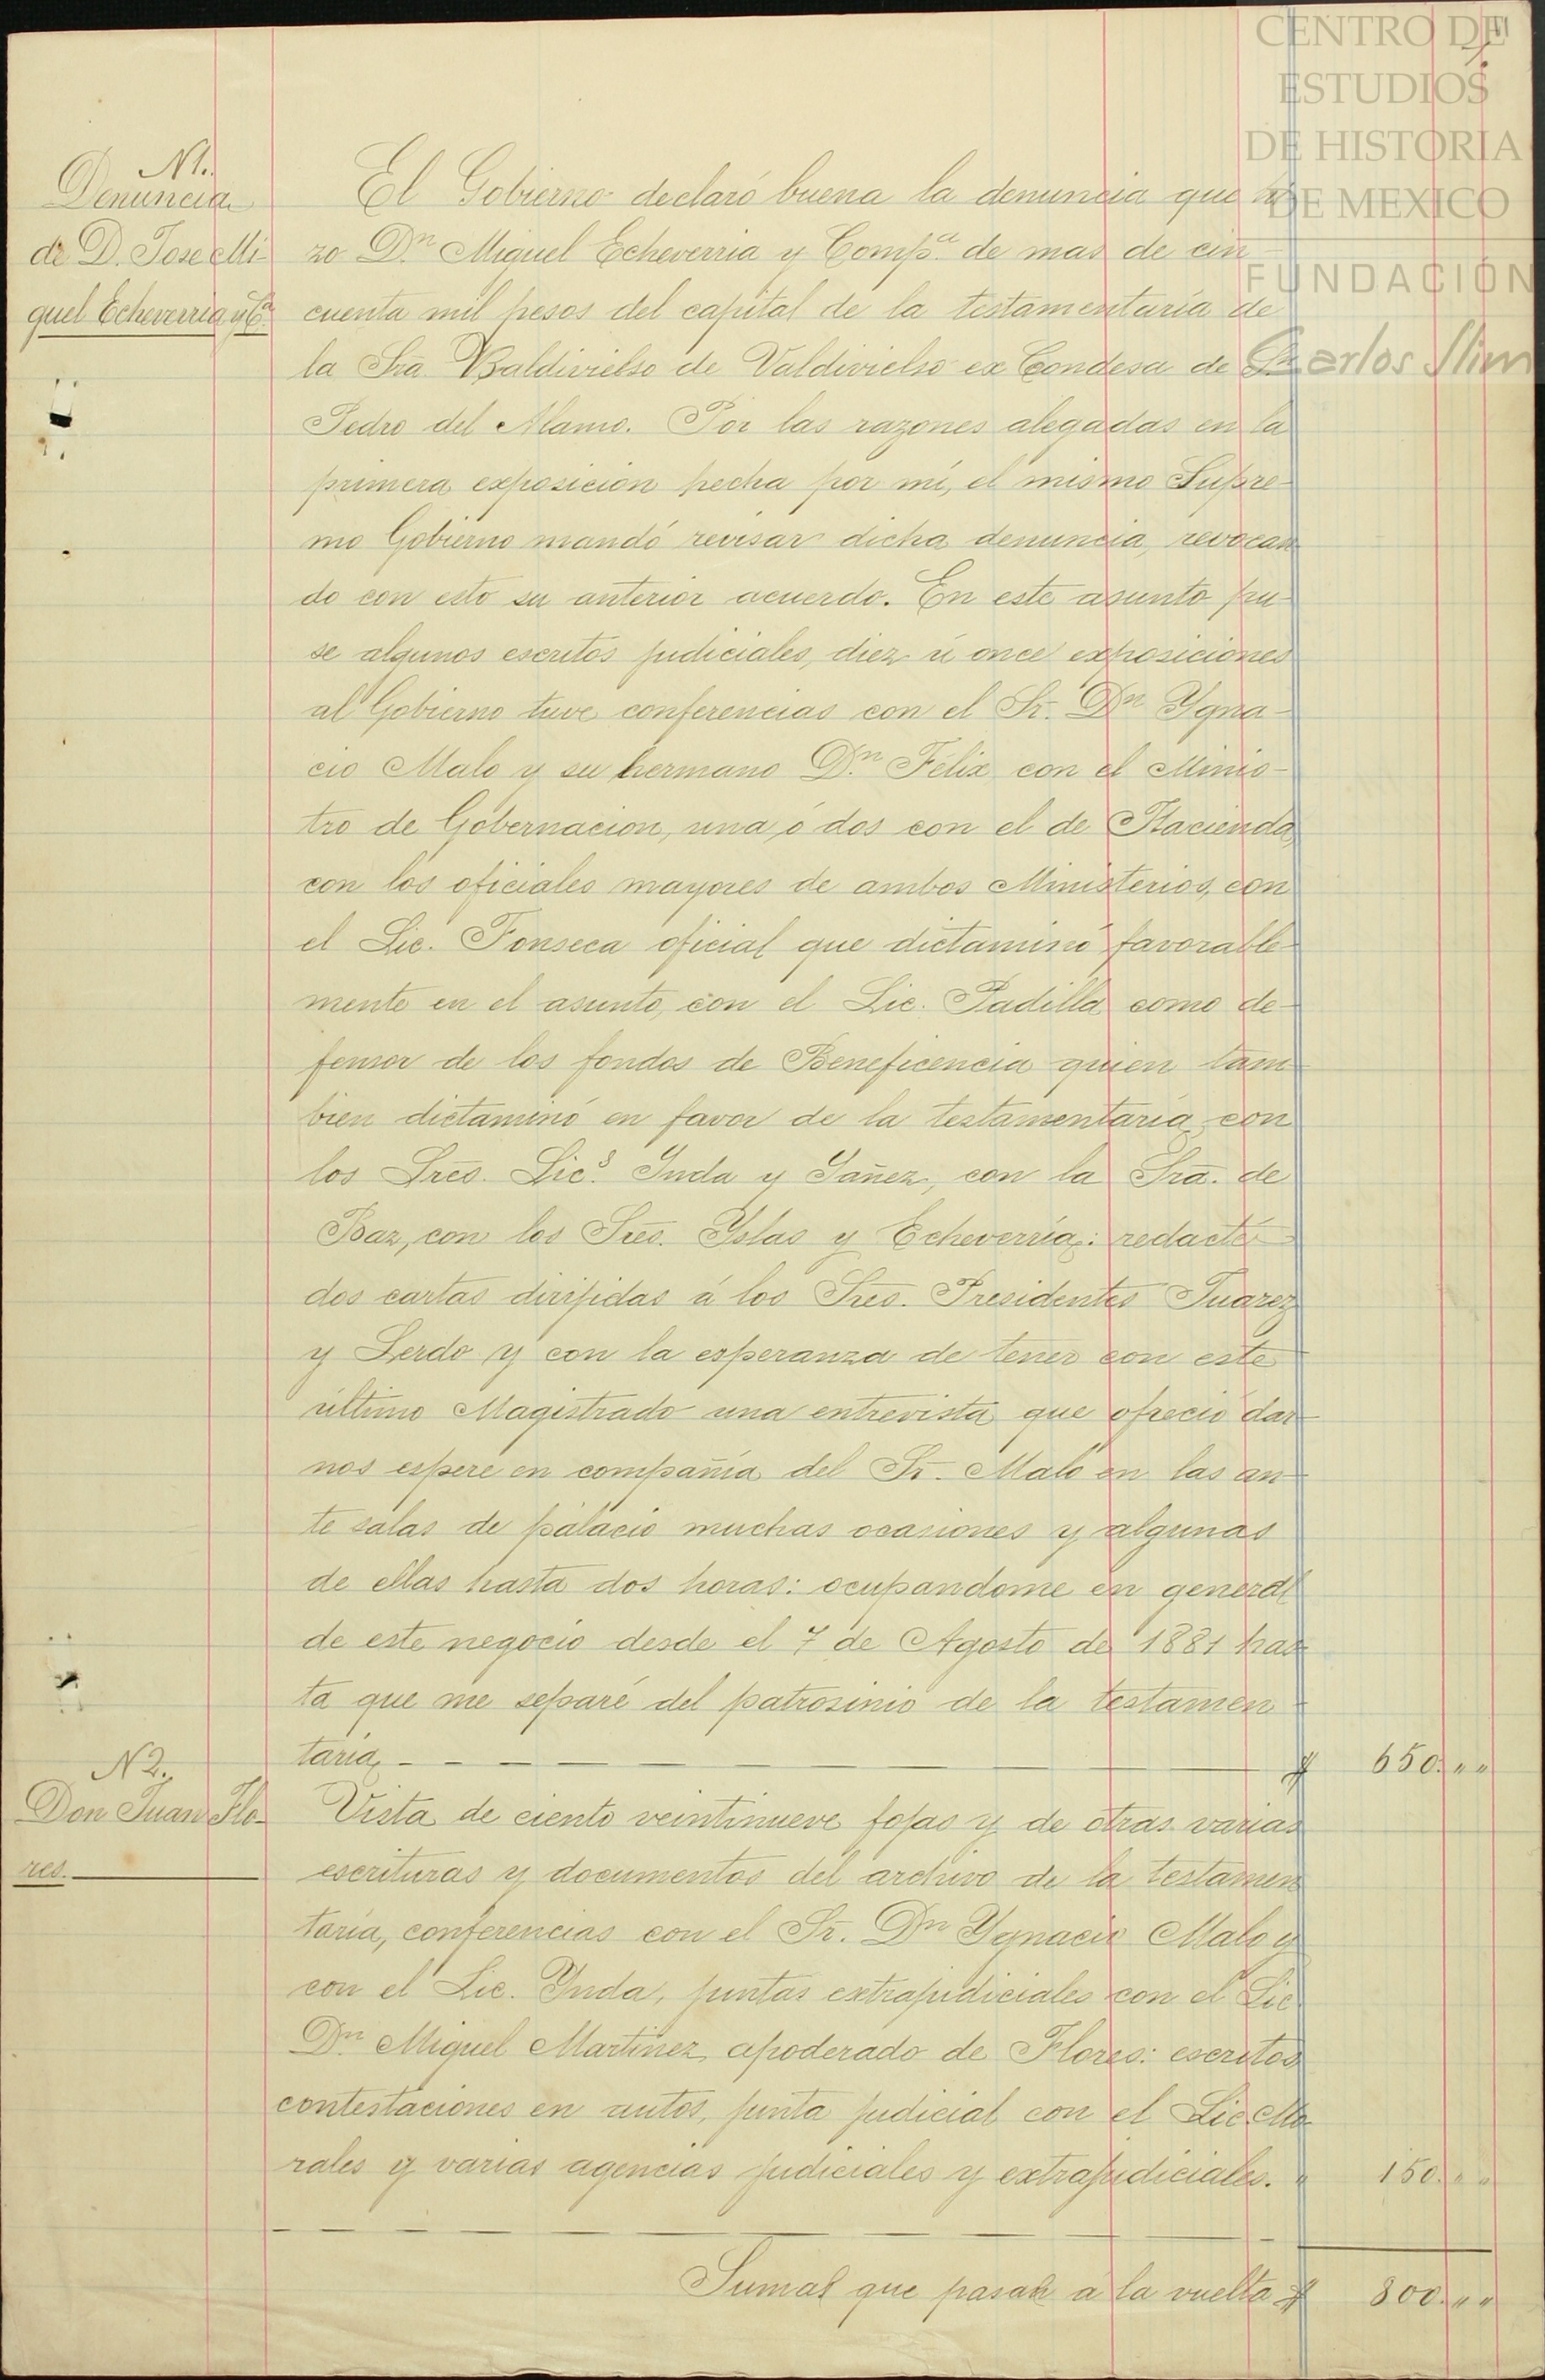 CENTRO DE
ESTUDIOS
DE HISTORIA
DE MEXICO
FUNDACIÓN
Carlos Slim
N 1.
Denuncia
de D. Jose Mi-
quel Echeverria y Cª
El Gobierno declaró buena la denuncia que hi
zo Dn. Miguel Echeverria y Compª. de mas de cin
cuenta mil pesos del capital de la testamentaría de
la Sra. Valdivielso de Valdivielso ex Condesa de Sn
Pedro del Alamo. Por las razones alegadas en la
primera exposicion hecha por mí, el mismo Supre-
mo Gobierno mandó revisar dicha denuncia, revocan
do con esto su anterior acuerdo. En este asunto pu-
se algunos escritos judiciales, diez ú once exposiciones
al Gobierno tuve conferencias con el Sr. Dn Ygna-
cio Malo y su hermano Dn. Félix con el Minis-
tro de Gobernacion, una ó dos con el de Hacienda,
con los oficiales mayores de ambos Ministerios, con
el Lic. Fonseca oficial que dictaminó favorable-
mente en el asunto, con el Lic. Padilla como de-
fensor de los fondos de Beneficencia quien tam
bien dictaminó en favor de la testamentaría, con
los Sres. Lics. Ynda y Yañez, con la Sra. de
Baz, con los Sres. Yslas y Echeverría: redacté
dos cartas dirijidas á los Sres. Presidentes Juarez
y Lerdo y con la esperanza de tener con este
último Magistrado una entrevista que ofreció dar-
nos esperé en compañía del Sr. Malo en las an-
te salas de palacio muchas ocasiones y algunas
de ellas hasta dos horas: ocupandome en general
de este negocio desde el 7 de Agosto de 1881 has
ta que me separé del patrosinio de la testamen-
taría, $ 650. " "
N 2.
Don Juan Flo-
res.
Vista de ciento veintinueve fojas y de otras varias
escrituras y documentos del archivo de la testamen
taría, conferencias con el Sr. Dn Ygnacio Malo y
con el Lic. Ynda, juntas extrajudiciales con el Lic
Dn. Miguel Martinez apoderado de Flores: escritos
contestaciones en autos, junta judicial con el Lic. Mo
rales y varias agencias judiciales y extrajudiciales. " 150. " "
Sumas que pasan á la vuelta $ 800. " "